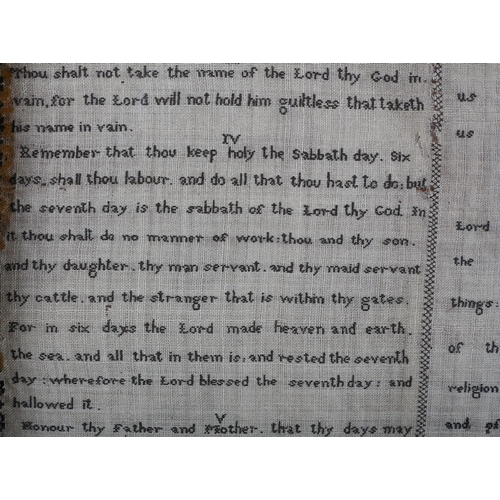 Thou shalt not take the name of the Lord thy God in
vain, for the Lord will not hold him guiltless that taketh
his name in vain.
IV
Remember that thou keep holy the Sabbath day. Six
days, shall thou labour. and do all that thou hast to do: but
the seventh day is the sabbath of the Lord thy God. In
it thou shalt do no manner of work: thou and thy son.
and thy daughter. thy man servant. and thy maid servant
thy cattle. and the stranger that is within thy gates.
For in six days the Lord made heaven and earth.
the sea. and all that in them is: and rested the seventh
day: wherefore the Lord blessed the seventh day: and
hallowed it.
V
Honour thy Father and Mother. that thy days may
us
us
Lord
the
things:
of th
religion
and of